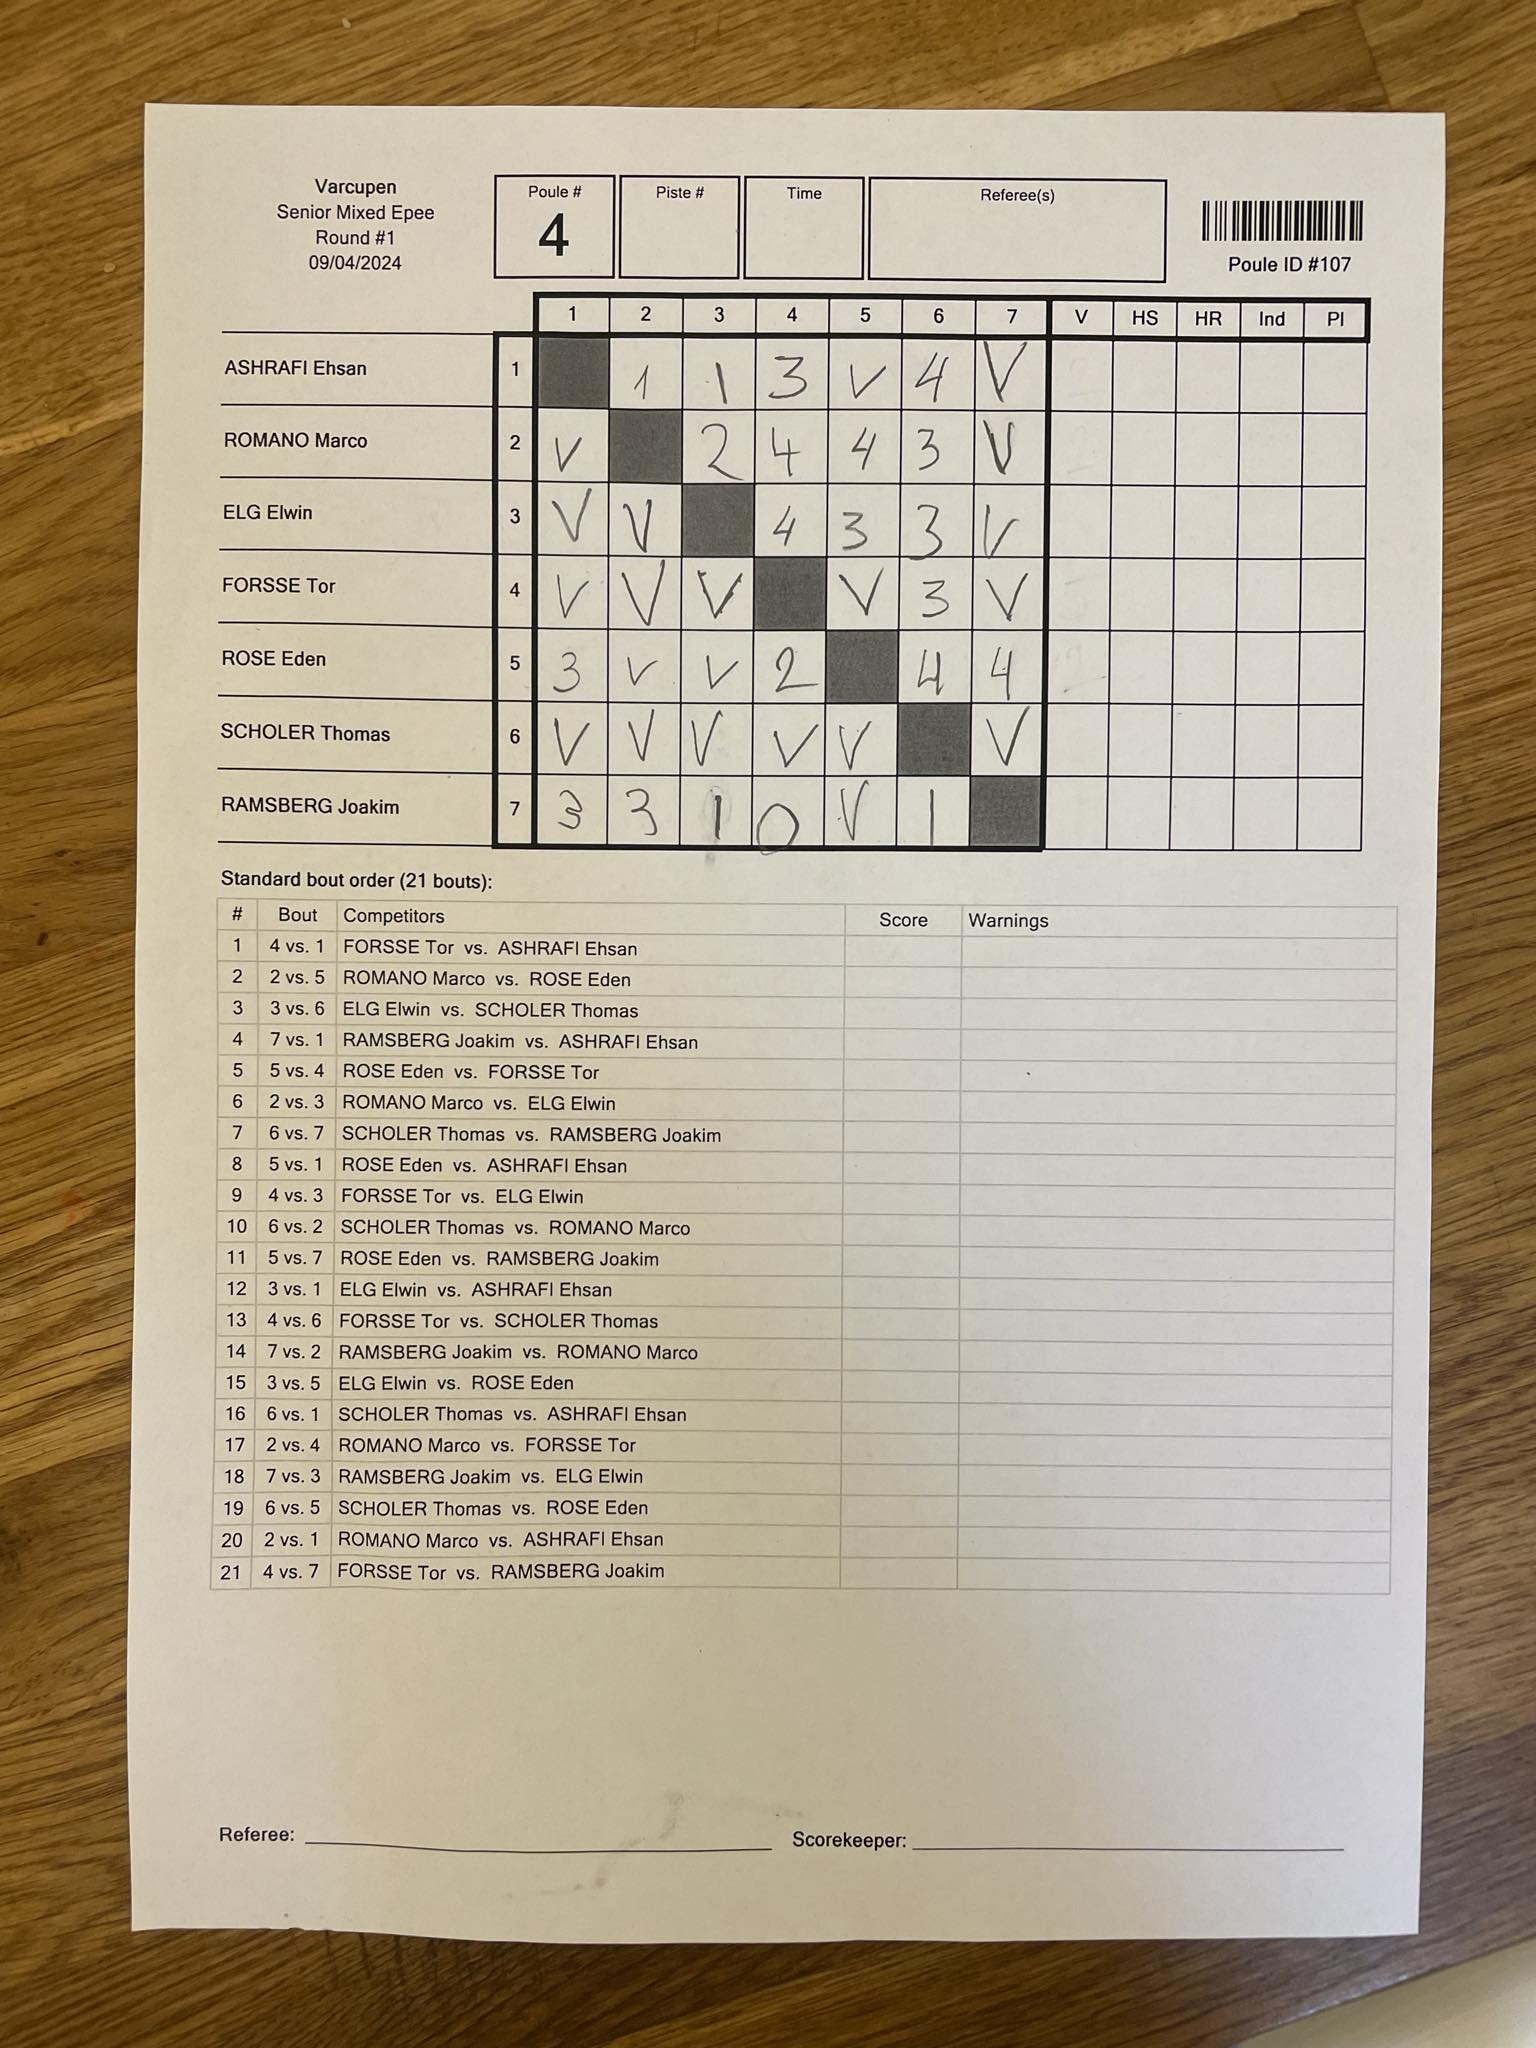 Varcupen
Senior Mixed Epee
Round #1
09/04/2024
Poule #
4
Piste #
Time
Referee(s)
Poule ID #107
1 2 3 4 5 6 7 V HS HR Ind Pl
ASHRAFI Ehsan 1 1 1 3 V 4 V
ROMANO Marco 2 V 2 4 4 3 V
ELG Elwin 3 V V 4 3 3 V
FORSSE Tor 4 V V V V 3 V
ROSE Eden 5 3 V V 2 4 4
SCHOLER Thomas 6 V V V V V V
RAMSBERG Joakim 7 3 3 1 0 V 1
Standard bout order (21 bouts):
# Bout Competitors Score Warnings
1 4 vs. 1 FORSSE Tor vs. ASHRAFI Ehsan
2 2 vs. 5 ROMANO Marco vs. ROSE Eden
3 3 vs. 6 ELG Elwin vs. SCHOLER Thomas
4 7 vs. 1 RAMSBERG Joakim vs. ASHRAFI Ehsan
5 5 vs. 4 ROSE Eden vs. FORSSE Tor
6 2 vs. 3 ROMANO Marco vs. ELG Elwin
7 6 vs. 7 SCHOLER Thomas vs. RAMSBERG Joakim
8 5 vs. 1 ROSE Eden vs. ASHRAFI Ehsan
9 4 vs. 3 FORSSE Tor vs. ELG Elwin
10 6 vs. 2 SCHOLER Thomas vs. ROMANO Marco
11 5 vs. 7 ROSE Eden vs. RAMSBERG Joakim
12 3 vs. 1 ELG Elwin vs. ASHRAFI Ehsan
13 4 vs. 6 FORSSE Tor vs. SCHOLER Thomas
14 7 vs. 2 RAMSBERG Joakim vs. ROMANO Marco
15 3 vs. 5 ELG Elwin vs. ROSE Eden
16 6 vs. 1 SCHOLER Thomas vs. ASHRAFI Ehsan
17 2 vs. 4 ROMANO Marco vs. FORSSE Tor
18 7 vs. 3 RAMSBERG Joakim vs. ELG Elwin
19 6 vs. 5 SCHOLER Thomas vs. ROSE Eden
20 2 vs. 1 ROMANO Marco vs. ASHRAFI Ehsan
21 4 vs. 7 FORSSE Tor vs. RAMSBERG Joakim
Referee: Scorekeeper: